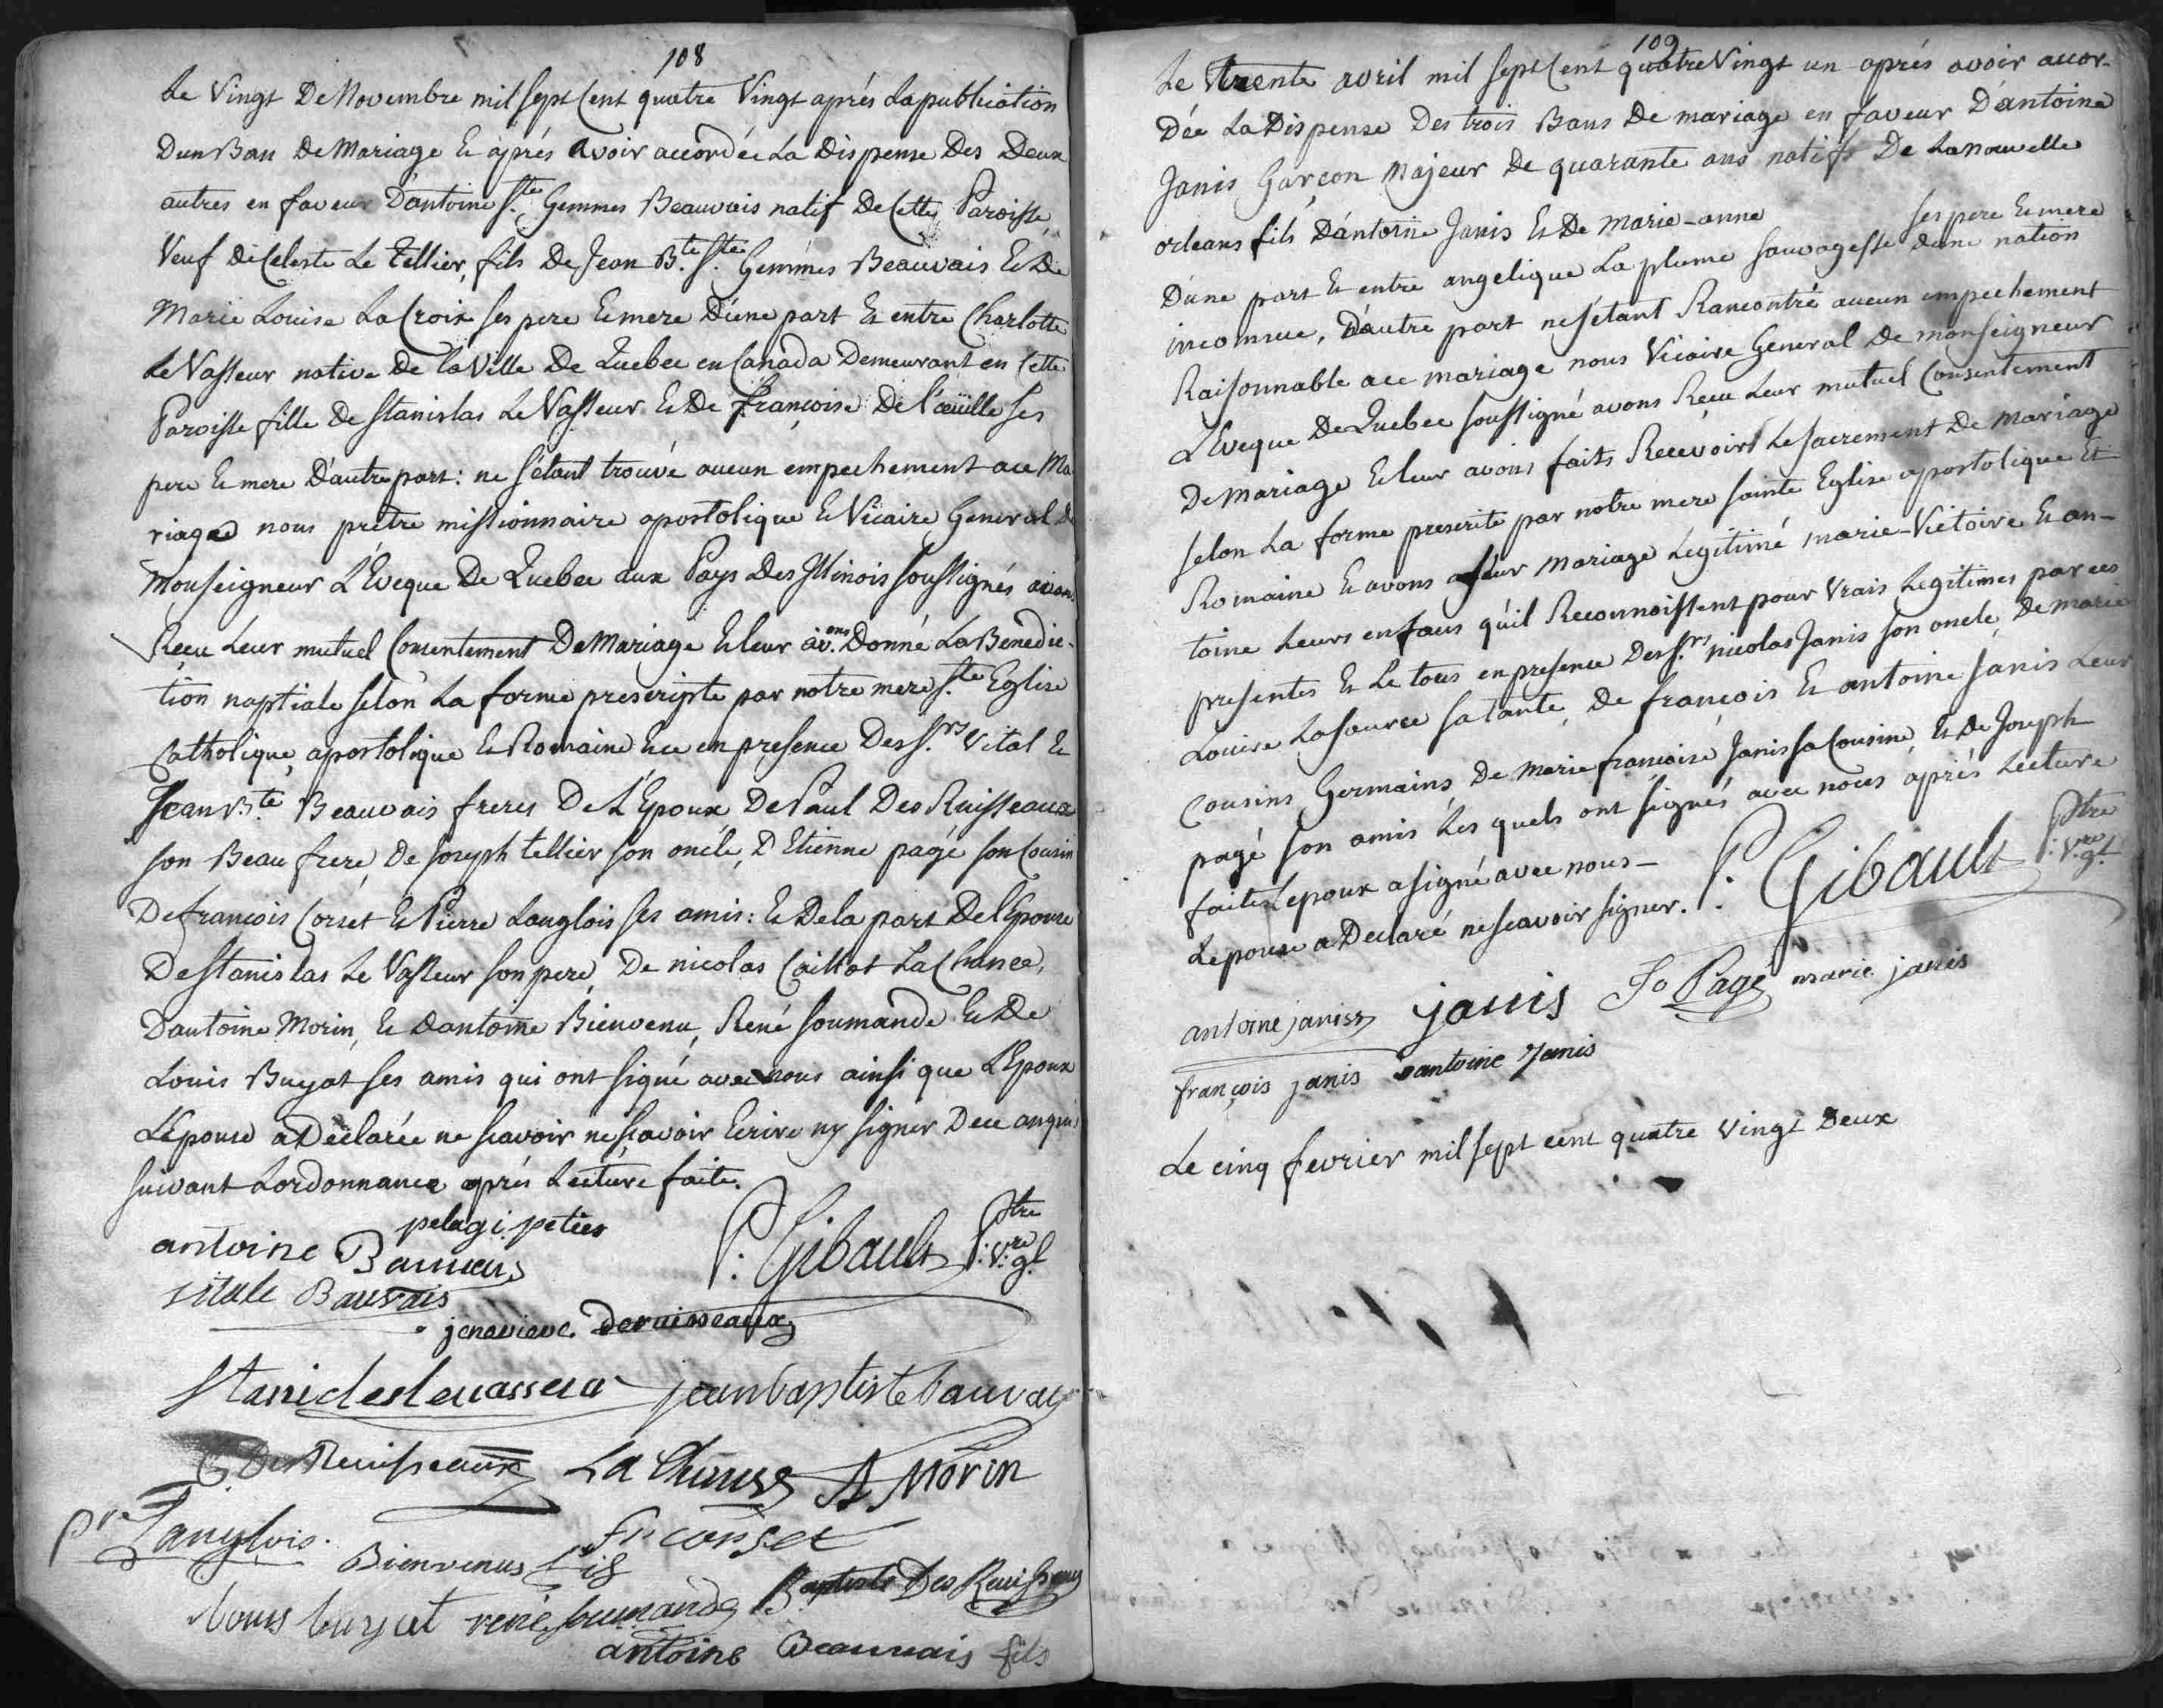 108
Le Vingt De Novembre mil sept Cent quatre Vingt aprés La publication
Dun Ban De Mariage Et aprés avoir accordée La Dispense Des Deux
autres en faveur D'antoine Ste. Gemmes Beauvais natif De Cette Paroisse
Veuf de Celeste Le Tellier, fils De Jean Bte. Ste. Gemmes Beauvais Et De
Marie Louise La Croix ses pere Et mere D'une part Et entre Charlotte
Le Vasseur native De la Ville De Quebec en Canada Demeurant en Cette
Paroisse fille De Stanislas Le Vasseur Et De françoise De l'oeuille ses
pere Et mere D'autre part: ne s'étant trouvé aucun empechement a ce Ma
riage nous prêtre missionnaire apostolique Et Vicaire General De
Monseigneur L'Eveque De Quebec aux Pays Des Illinois soussignés avons
Reçu Leur mutuel Consentement De Mariage Et leur av.ons Donné La Benedic-
tion naptiale selon La forme prescripte par notre mere Ste. Eglise
Catholique, apostolique Et Romaine Et ce en presence Des Srs. Vital Et
Jean Bte. Beauvais freres De L'Epoux De Paul Des Ruisseaux
son Beau frere, De Joseph tellier son oncle, D'Etienne pagé son Cousin
De françois Corset Et Pierre Langlois ses amis: Et De la part De l'Epouse
De Stanislas Le Vasseur son pere, De nicolas Caillot La Chance,
D'antoine Morin, Et D'antoine Bienvenu, René Soumande Et De
Louis Buyat ses amis qui ont signé avec nous ainsi que L'Epoux
L'Epouse a Declarée ne scavoir ne scavoir Ecrire ny signer De ce anquis
suivant L'ordonnance aprés Lecture faite.
pelagi petier
antoine Bauvais
P. Gibault Ptre
V.re gl
vitale Bauvais
jenavieve Deruisseaux
Stanicles levasseur jeanbaptiste bauvais
DesRuisseaux La Chanse A Morin
Pre Langlois.
fr corset
Bienvenus fis
louis buyat rené sumande Baptiste Des Ruisseaux
antoine Beauvais fils
109
Le trente avril mil sept Cent quatre Vingt un aprés avoir accor-
Dée La Dispense Des trois Bans De mariage en faveur D'antoine
Janis Garçon Majeur De quarante ans natifs De La nouvelle
orleans fils D'antoine Janis Et De Marie-anne ses pere Et mere
D'une part Et entre angelique La plume sauvagesse d'une nation
inconnue, D'autre part ne s'étant Rancontré aucun empechement
Raisonnable a ce mariage nous Vicaire General De monseigneur
L'Eveque De Quebec soussigné avons Reçu Leur mutuel Consentement
De Mariage Et leur avons faits Recevoirs Le sacrement De Mariage
selon La forme prescrite par notre mere sainte Eglise apostolique Et
Romaine Et avons a leur Mariage Legitimé marie-Victoire Et an-
toine Leurs enfans qu'il Reconnoissent pour Vrais Legitimes par ces
presentes Et Le tous en presence Des Srs. nicolas Janis son oncle, De Marie
Louise Lasource sa tante, De françois Et antoine Janis Leur
Cousins Germains, De Marie françoise Janis sa Cousine, Et De Joseph
pagé son amis Les quels ont signés avec nous aprés Lecture
faite L'epoux a signé avec nous -
L'epouse a Declaré ne scavoir signer. P. Gibault Ptre
V.re gl
antoine janiss janis Jo Pagé marie janis
françois janis antoine Janis
Le cinq fevrier mil sept cent quatre Vingt Deux